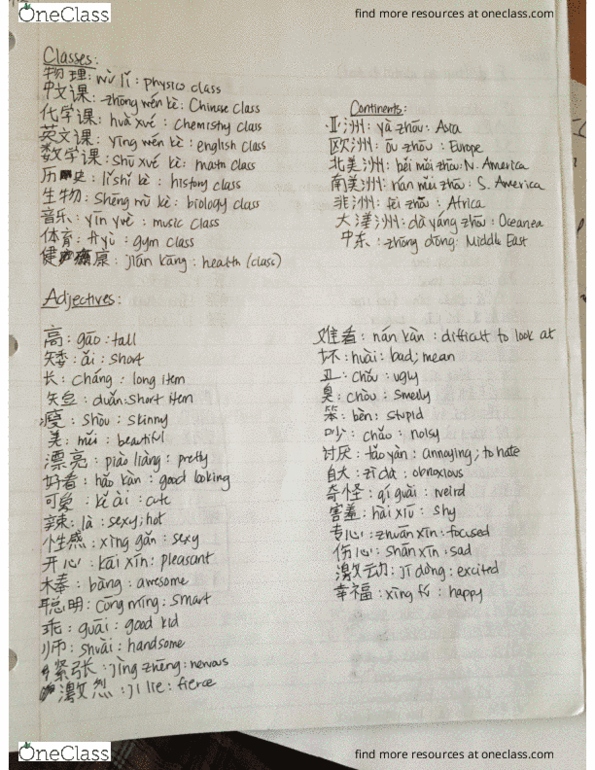 OneClass
find more resources at oneclass.com
Classes:
物理: wù lǐ: physics class
中文课: zhōng wén kè: Chinese class
化学课: huà xué: Chemistry class
英文课: yīng wén kè: english class
数学课: shù xué kè: math class
历史: lì shǐ kè: history class
生物: shēng wù kè: biology class
音乐: yīn yuè: music class
体育: tǐ yù: gym class
健康: jiàn kāng: health (class)
Continents:
亚洲: yà zhōu: Asia
欧洲: ōu zhōu: Europe
北美洲: běi měi zhōu: N. America
南美洲: nán měi zhōu: S. America
非洲: fēi zhōu: Africa
大洋洲: dà yáng zhōu: Oceanea
中东: zhōng dōng: Middle East
Adjectives:
高: gāo: tall
矮: ǎi: short
长: cháng: long item
短: duǎn: short item
瘦: shòu: skinny
美: měi: beautiful
漂亮: piào liàng: pretty
好看: hǎo kàn: good looking
可爱: kě ài: cute
辣: là: sexy; hot
性感: xìng gǎn: sexy
开心: kāi xīn: pleasant
棒: bàng: awesome
聪明: cōng míng: smart
乖: guāi: good kid
帅: shuài: handsome
紧张: jǐng zhēng: nervous
激烈: jī liè: fierce
难看: nán kàn: difficult to look at
坏: huài: bad; mean
丑: chǒu: ugly
臭: chòu: smelly
笨: bèn: stupid
吵: chǎo: noisy
讨厌: tǎo yàn: annoying; to hate
自大: zì dà: obnoxious
奇怪: qí guài: weird
害羞: hài xiū: shy
专心: zhuān xīn: focused
伤心: shān xīn: sad
激动: jī dòng: excited
幸福: xìng fú: happy
OneClass
find more resources at oneclass.com